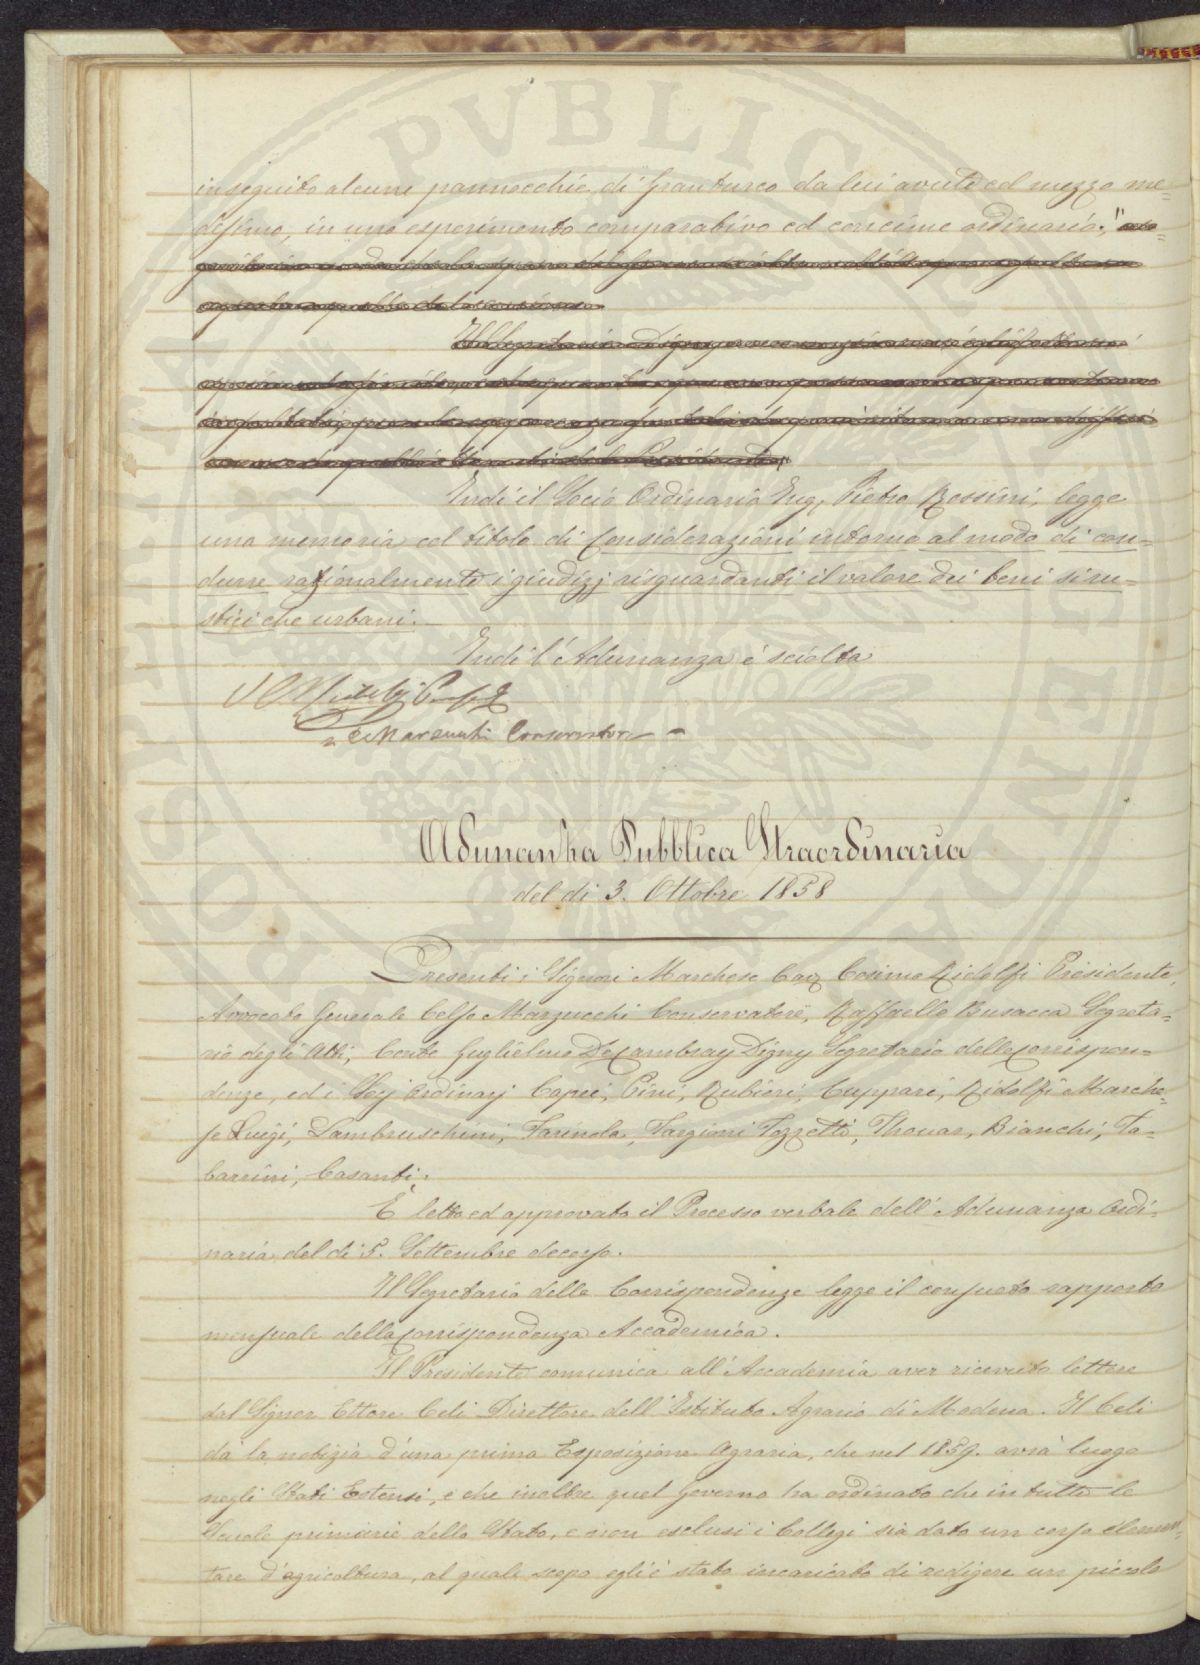 in seguito alcune pannocchie di Granturco da lui avute col mezzo me=
desimo, in uno esperimento comparativo col concime ordinario."
Indi il Socio Ordinario Ing. Pietro Rossini, legge
una memoria col titolo di Considerazioni intorno al modo di con=
durre razionalmente i giudizj risguardanti il valore dei beni si ru=
stici che urbani.
Indi l'Adunanza è sciolta
C Marzucchi Conservatore
Adunanza Pubblica Straordinaria
del di 3. Ottobre 1858
Presenti i Signori Marchese Cav Cosimo Ridolfi Presidente,
Avvocato Generale Celso Marzucchi Conservatore, Raffaelle Busacca Segreta=
rio degli Atti, Conte Guglielmo De Cambray Digny Segretario delle Corrispon=
denze, ed i Socj Ordinarj Capei, Pini, Rubieri, Cuppari, Ridolfi Marche=
se Luigi, Lambruschini, Farinola, Targioni Tozzetti, Thouar, Bianchi, Ta=
barrini, Casanti.
È letto ed approvato il Processo verbale dell'Adunanza Ordi=
naria del di 5. Settembre decorso.
Il Segretario delle Corrispondenze legge il consueto rapporto
mensuale della Corrispondenza Accademica.
Il Presidente comunica all'Accademia aver ricevuto lettere
dal Signor Ettore Celi Direttore dell'Istituto Agrario di Modena. Il Celi
dà la notizia d'una prima Esposizione Agraria, che nel 1859. avrà luogo
negli Stati Estensi, e che inoltre quel Governo ha ordinato che in tutte le
Scuole primarie dello Stato, e non esclusi i Collegi sia dato un corso elemen=
tare d'agricoltura, al quale scopo egli è stato incaricato di redigere un piccolo
PVBLICA